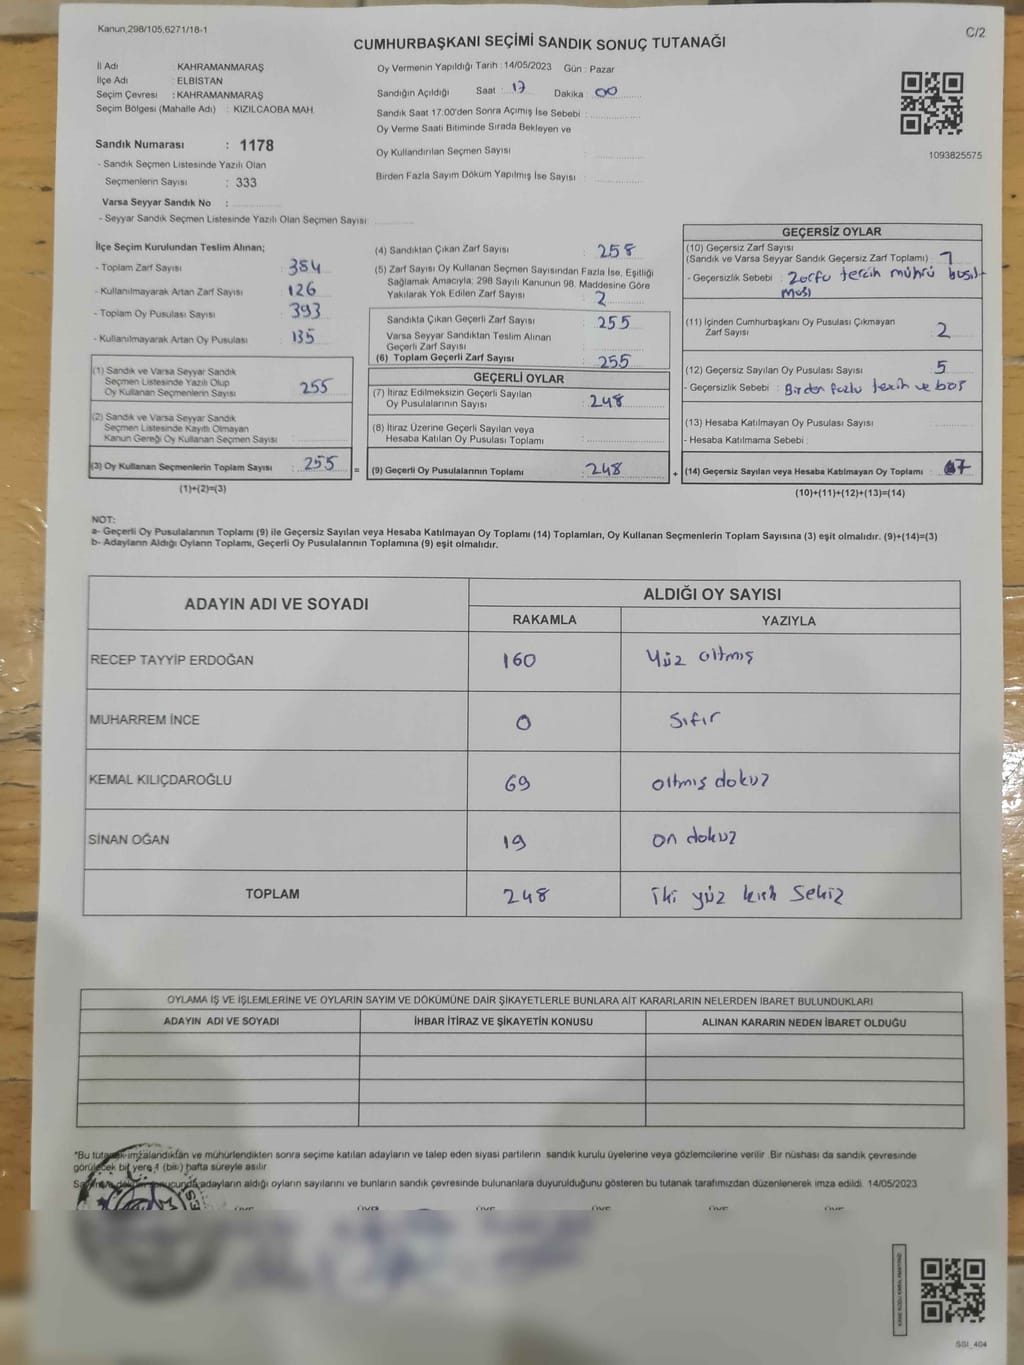 Kanun,298/105,6271/18-1
C/2
CUMHURBAŞKANI SEÇİMİ SANDIK SONUÇ TUTANAĞI
İl Adı : KAHRAMANMARAŞ
İlçe Adı : ELBİSTAN
Seçim Çevresi : KAHRAMANMARAŞ
Seçim Bölgesi (Mahalle Adı) : KIZILCAOBA MAH.
Sandık Numarası : 1178
- Sandık Seçmen Listesinde Yazılı Olan
Seçmenlerin Sayısı : 333
Varsa Seyyar Sandık No :
- Seyyar Sandık Seçmen Listesinde Yazılı Olan Seçmen Sayısı:
Oy Vermenin Yapıldığı Tarih : 14/05/2023 Gün : Pazar
Sandığın Açıldığı Saat : 17 Dakika : 00
Sandık Saat 17:00'den Sonra Açımış İse Sebebi :
Oy Verme Saati Bitiminde Sırada Bekleyen ve
Oy Kullandırılan Seçmen Sayısı :
Birden Fazla Sayım Döküm Yapılmış İse Sayısı :
1093825575
İlçe Seçim Kurulundan Teslim Alınan;
- Toplam Zarf Sayısı : 384
- Kullanılmayarak Artan Zarf Sayısı : 126
- Toplam Oy Pusulası Sayısı : 393
- Kullanılmayarak Artan Oy Pusulası : 135
(1) Sandık ve Varsa Seyyar Sandık
Seçmen Listesinde Yazılı Olup
Oy Kullanan Seçmenlerin Sayısı : 255
(2) Sandık ve Varsa Seyyar Sandık
Seçmen Listesinde Kayıtlı Olmayan
Kanun Gereği Oy Kullanan Seçmen Sayısı :
(3) Oy Kullanan Seçmenlerin Toplam Sayısı : 255 =
(1)+(2)=(3)
(4) Sandıktan Çıkan Zarf Sayısı : 258
(5) Zarf Sayısı Oy Kullanan Seçmen Sayısından Fazla İse, Eşitliği
Sağlamak Amacıyla; 298 Sayılı Kanunun 98. Maddesine Göre
Yakılarak Yok Edilen Zarf Sayısı : 2
Sandıkta Çıkan Geçerli Zarf Sayısı : 255
Varsa Seyyar Sandıktan Teslim Alınan
Geçerli Zarf Sayısı :
(6) Toplam Geçerli Zarf Sayısı : 255
GEÇERLİ OYLAR
(7) İtiraz Edilmeksizin Geçerli Sayılan
Oy Pusulalarının Sayısı : 248
(8) İtiraz Üzerine Geçerli Sayılan veya
Hesaba Katılan Oy Pusulası Toplamı :
(9) Geçerli Oy Pusulalarının Toplamı : 248 +
GEÇERSİZ OYLAR
(10) Geçersiz Zarf Sayısı
(Sandık ve Varsa Seyyar Sandık Geçersiz Zarf Toplamı) :
- Geçersizlik Sebebi : Zarfa tercih mührü basıl-
ması
(11) İçinden Cumhurbaşkanı Oy Pusulası Çıkmayan
Zarf Sayısı : 2
(12) Geçersiz Sayılan Oy Pusulası Sayısı : 5
- Geçersizlik Sebebi : Birden fazla tercih ve boş
(13) Hesaba Katılmayan Oy Pusulası Sayısı :
- Hesaba Katılmama Sebebi :
(14) Geçersiz Sayılan veya Hesaba Katılmayan Oy Toplamı : 7
(10)+(11)+(12)+(13)=(14)
NOT:
a- Geçerli Oy Pusulalarının Toplamı (9) ile Geçersiz Sayılan veya Hesaba Katılmayan Oy Toplamı (14) Toplamları, Oy Kullanan Seçmenlerin Toplam Sayısına (3) eşit olmalıdır. (9)+(14)=(3)
b- Adayların Aldığı Oyların Toplamı, Geçerli Oy Pusulalarının Toplamına (9) eşit olmalıdır.
ADAYIN ADI VE SOYADI ALDIĞI OY SAYISI
RAKAMLA YAZIYLA
RECEP TAYYİP ERDOĞAN 160 Yüz altmış
MUHARREM İNCE 0 Sıfır
KEMAL KILIÇDAROĞLU 69 altmış dokuz
SİNAN OĞAN 19 on dokuz
TOPLAM 248 iki yüz kırk sekiz
OYLAMA İŞ VE İŞLEMLERİNE VE OYLARIN SAYIM VE DÖKÜMÜNE DAİR ŞİKAYETLERLE BUNLARA AİT KARARLARIN NELERDEN İBARET BULUNDUKLARI
ADAYIN ADI VE SOYADI İHBAR İTİRAZ VE ŞİKAYETİN KONUSU ALINAN KARARIN NEDEN İBARET OLDUĞU
*Bu tutanak imzalandıktan ve mühürlendikten sonra seçime katılan adayların ve talep eden siyasi partilerin sandık kurulu üyelerine veya gözlemcilerine verilir .Bir nüshası da sandık çevresinde
görülecek bir yere 1 (bir) hafta süreyle asılır.
Sayım ve döküm sonucunda adayların aldığı oyların sayılarını ve bunların sandık çevresinde bulunanlara duyurulduğunu gösteren bu tutanak tarafımızdan düzenlenerek imza edildi. 14/05/2023